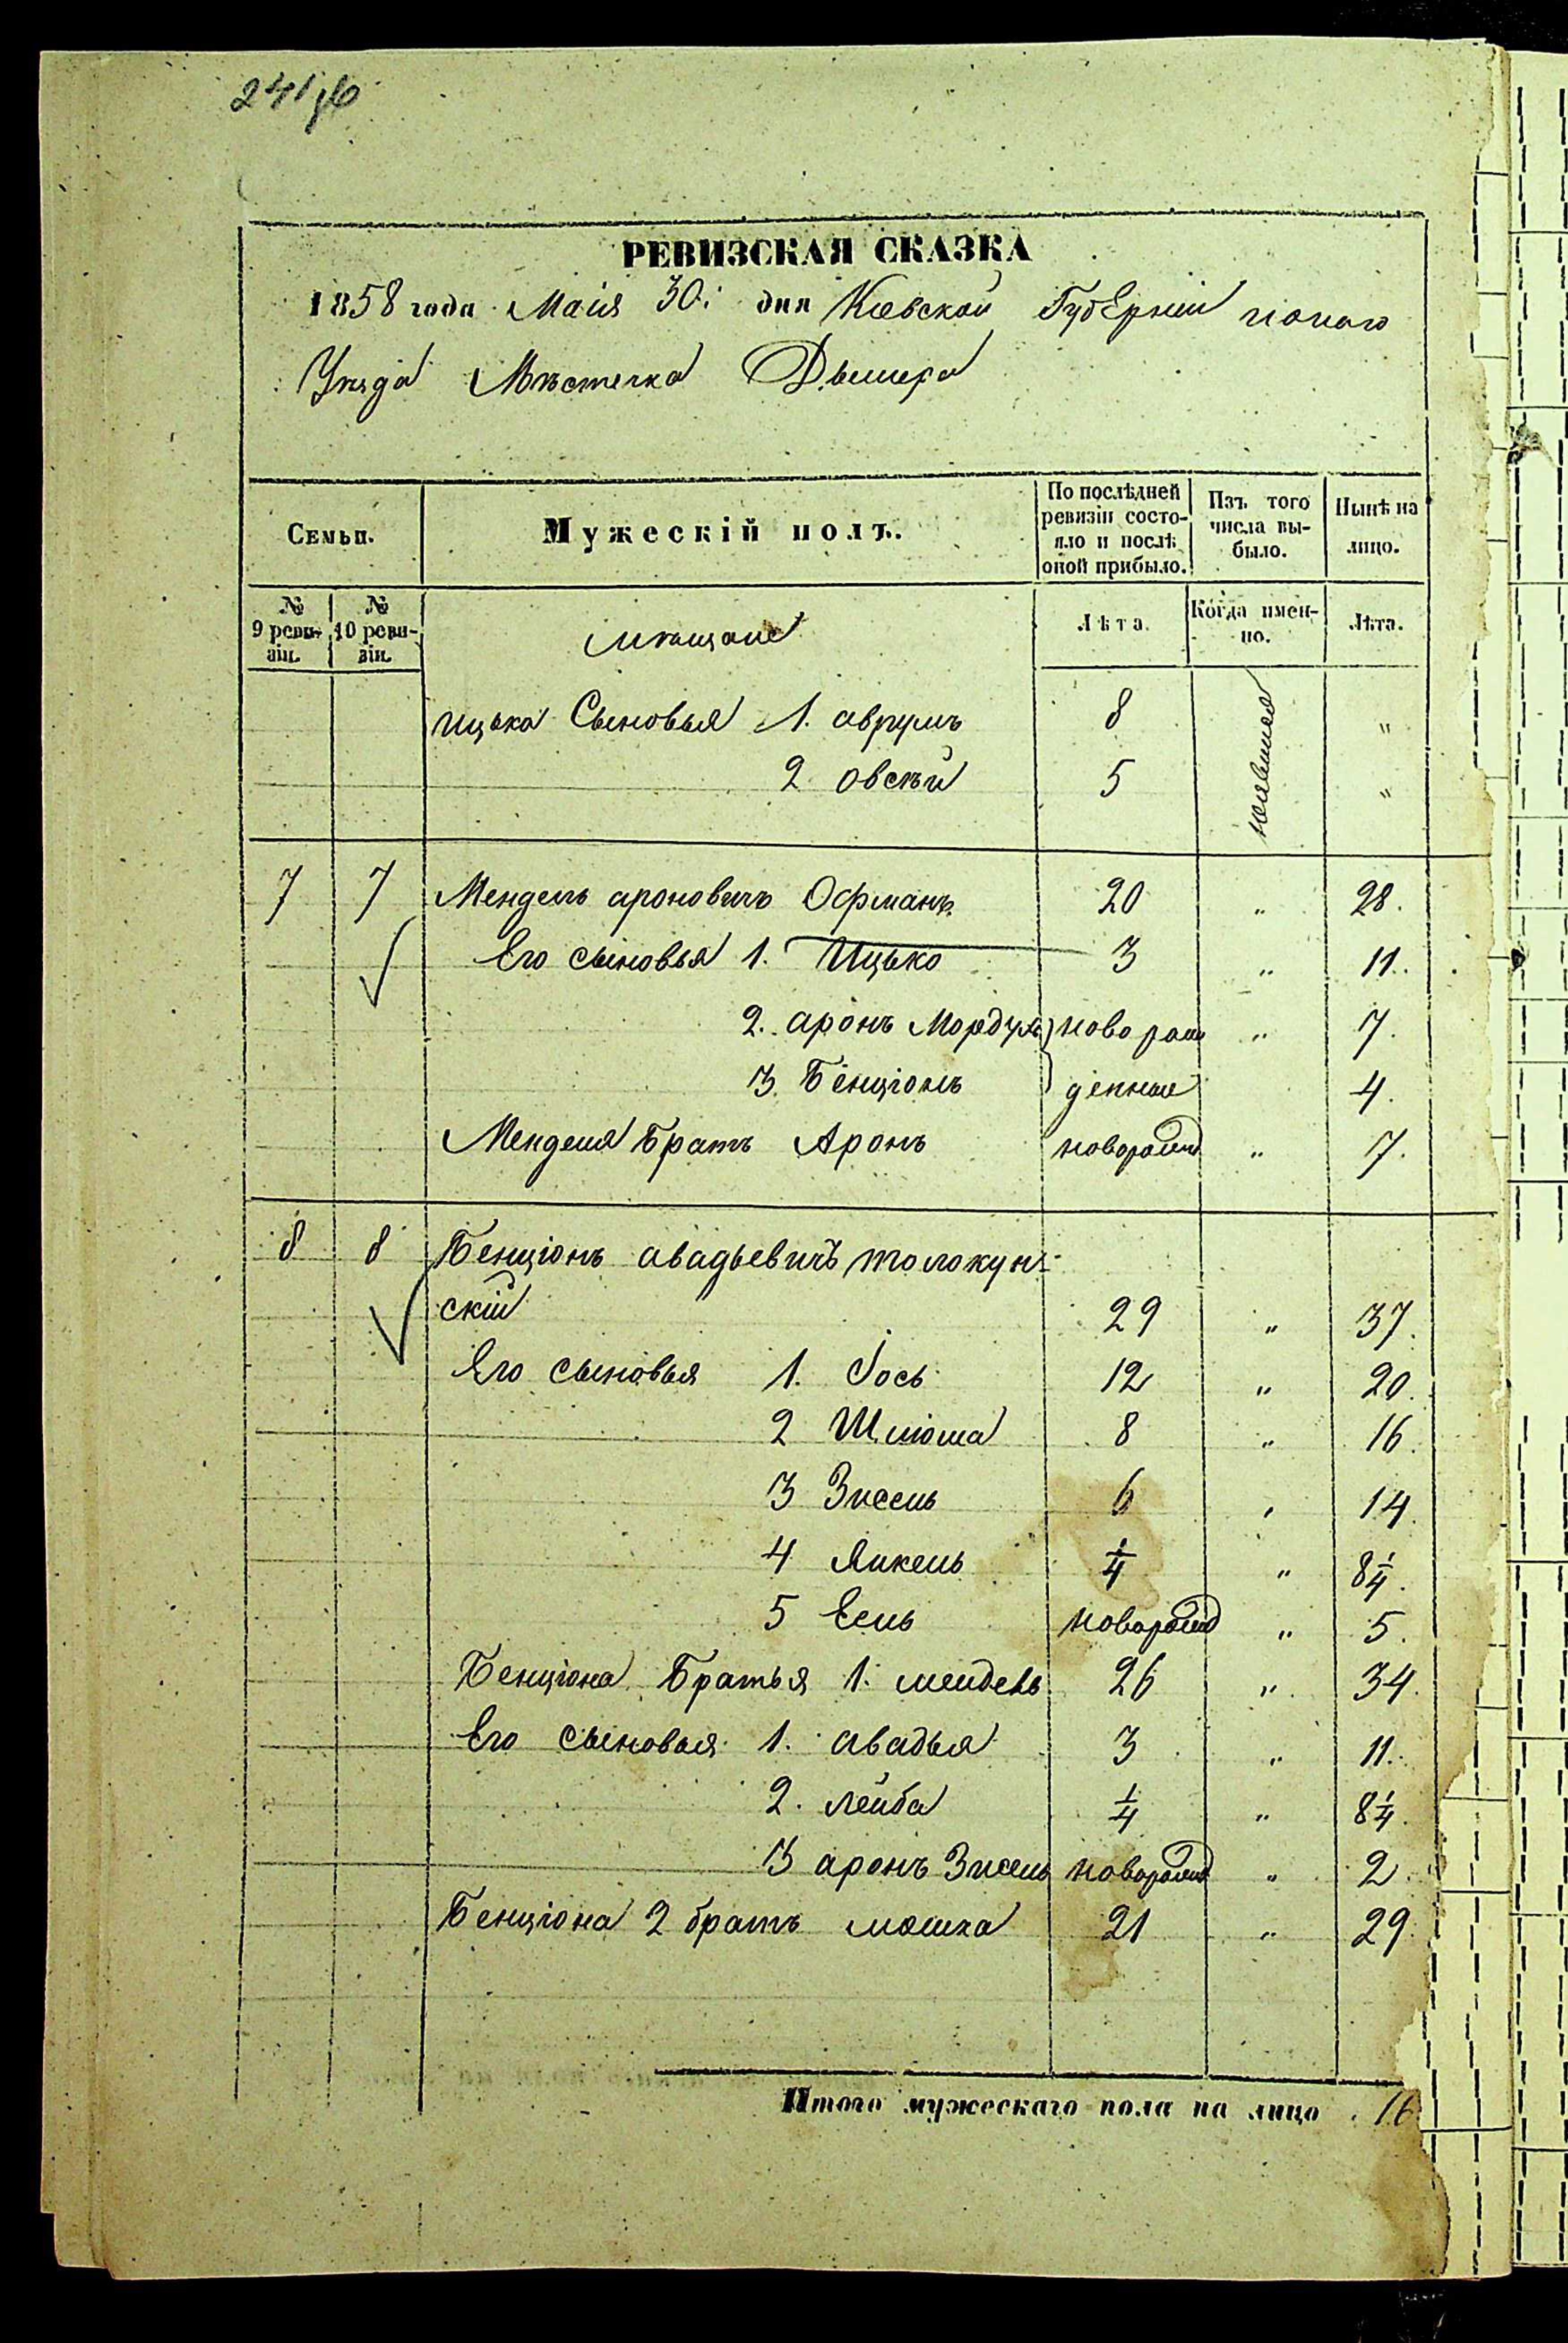 241
РЕВИЗСКАЯ СКАЗКА
1858 года Маія 30 дня Кіевской Губерніи
Уѣзда Мѣстечка Дымера
Семьи. Мужескій полъ. По послѣдней ревизіи состояло и послѣ оной прибыло. Изъ того числа выбыло. Нынѣ на лицо.
№ 9 ревизіи. № 10 ревизіи. мѣщане Лѣта. Когда именно. Лѣта.
ицька Сыновья 1. аврумъ 8 "
2 овсѣй 5 "
7 7 Мендель ароновичъ Офманъ 20 " 28.
Его сыновья 1. Ицько 3 " 11.
2. аронъ Мордух ново рож " 7.
3. Бенціонъ денные 4.
Менделя Братъ Аронъ новорожд " 7.
8 8 Бенціонъ авадьевичъ толокун-
скій 29 " 37.
Его сыновья 1. Іось 12 " 20.
2 Шлiома 8 " 16.
3 Зисель 6 " 14.
4 Янкель 1/4 " 8 1/4.
5 новорожд " 5.
Бенціона Братья 1. мендель 26 " 34.
Его сыновья 1. авадья 3 " 11.
2. лейба 1/4 " 8 1/4.
3 аронъ Зисель новорожд " 2.
Бенціона 2 братъ мошка 21 " 29.
Итого мужескаго пола на лицо 16